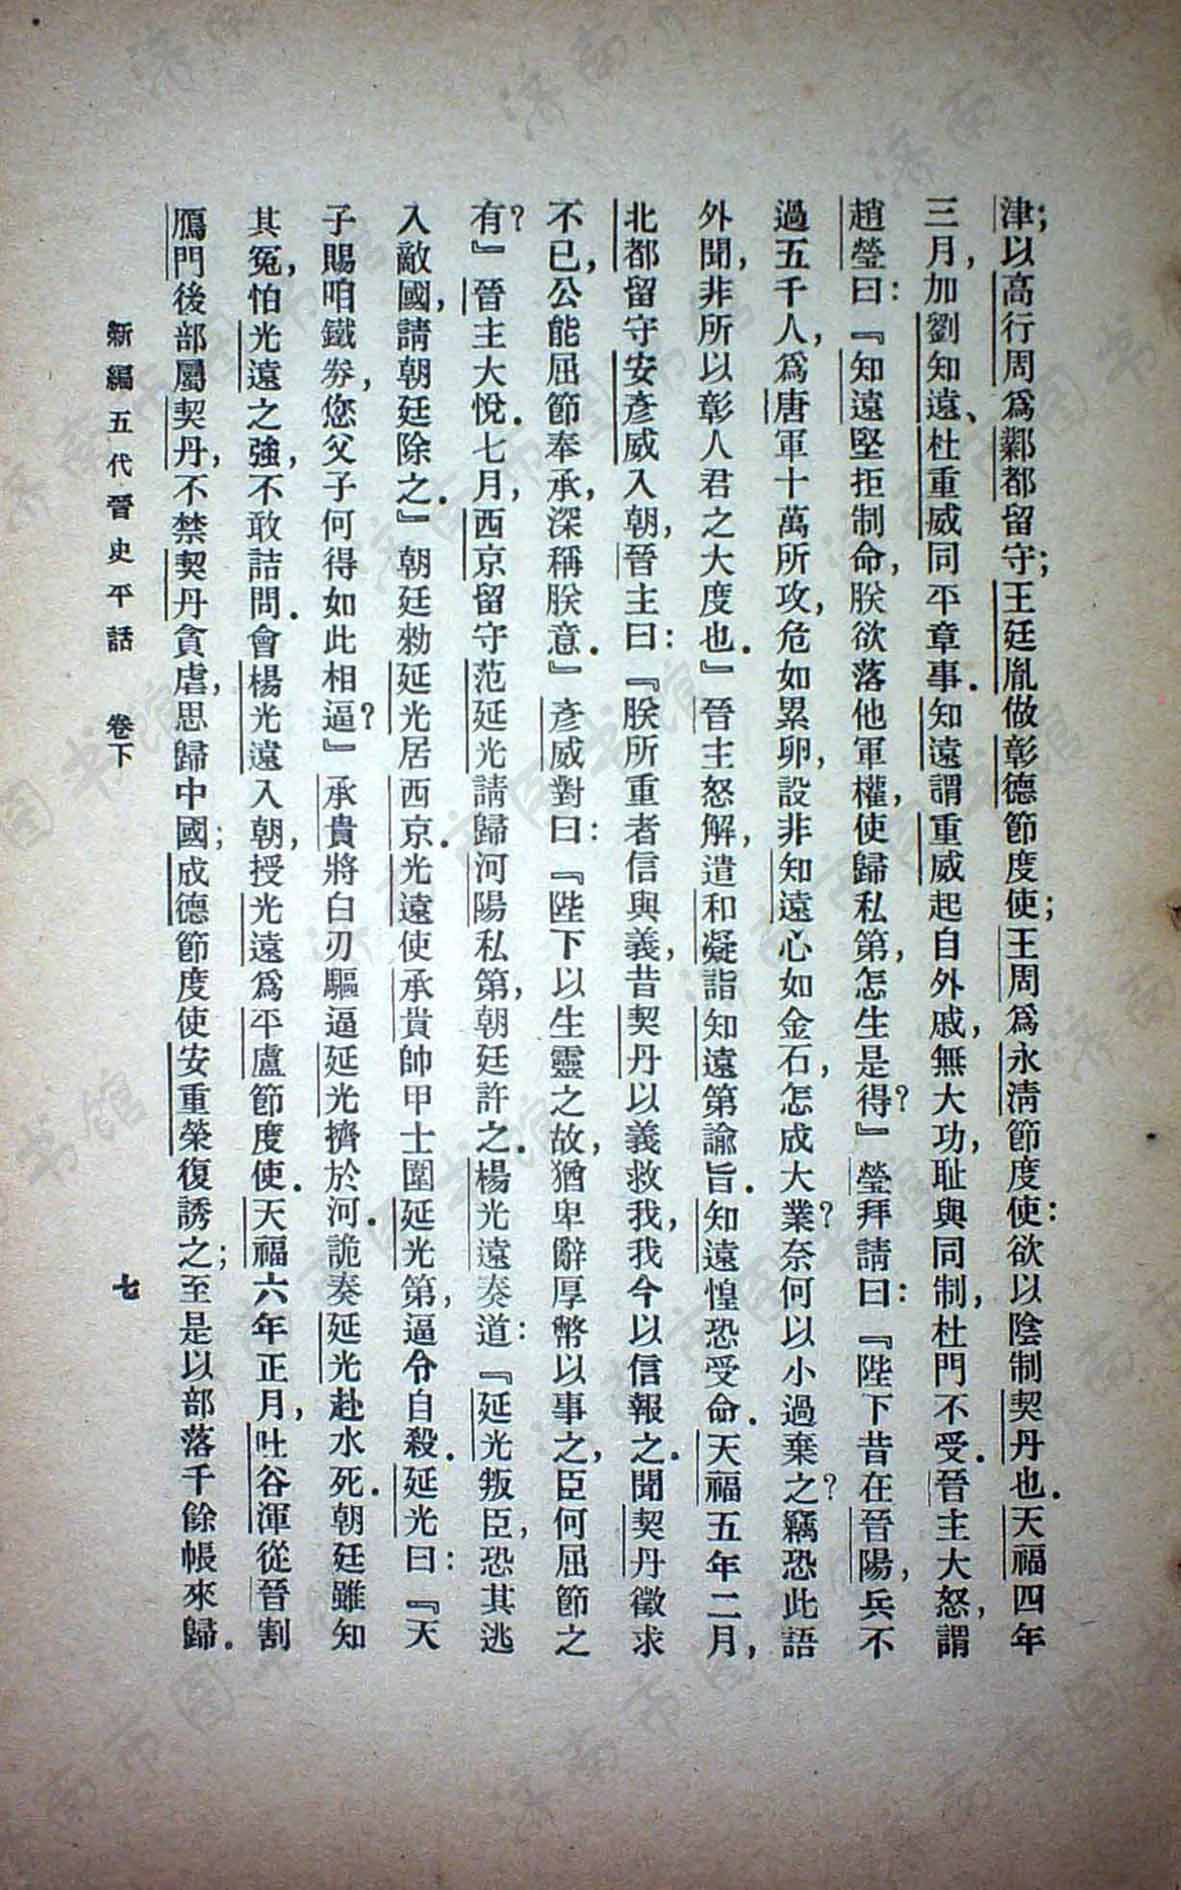 津;以高行周爲鄴都留守;王廷胤做彰德節度使;王周爲永淸節度使:欲以陰制契丹也.天福四年
三月,加劉知遠、杜重威同平章事.知遠謂重威起自外戚,無大功,耻與同制,杜門不受.晉主大怒,謂
趙瑩曰:『知遠堅拒制命,朕欲落他軍權,使歸私第,怎生是得?』瑩拜請曰:『陛下昔在晉陽,兵不
過五千人,爲唐軍十萬所攻,危如累卵,設非知遠心如金石,怎成大業?奈何以小過棄之?竊恐此語
外聞,非所以彰人君之大度也.』晉主怒解,遣和凝詣知遠第諭旨.知遠惶恐受命.天福五年二月,
北都留守安彥威入朝,晉主曰:『朕所重者信與義,昔契丹以義救我,我今以信報之.聞契丹徵求
不已,公能屈節奉承,深稱朕意.』彥威對曰:『陛下以生靈之故,猶卑辭厚幣以事之,臣何屈節之
有?』晉主大悅.七月,西京留守范延光請歸河陽私第,朝廷許之.楊光遠奏道:『延光叛臣,恐其逃
入敵國,請朝廷除之.』朝廷勑延光居西京.光遠使承貴帥甲士圍延光第,逼令自殺.延光曰:『天
子賜咱鐵券,您父子何得如此相逼?』承貴將白刃驅逼延光擠於河.詭奏延光赴水死.朝廷雖知
其冤,怕光遠之強,不敢詰問.會楊光遠入朝,授光遠爲平盧節度使.天福六年正月,吐谷渾從晉割
鴈門後部屬契丹,不禁契丹貪虐,思歸中國;成德節度使安重榮復誘之;至是以部落千餘帳來歸.
新編五代晉史平話　卷下　七
济南市图书馆